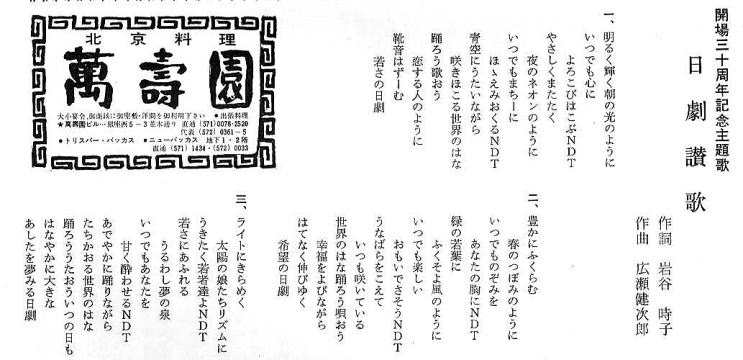 開場三十周年記念主題歌
日劇讃歌
作詞 岩谷時子
作曲 広瀬健次郎
一、明るく輝く朝の光のように
いつでも心に
よろこびはこぶNDT
やさしくまたたく
夜のネオンのように
いつでもまちーに
ほゝえみおくるNDT
青空にうたいながら
咲きほこる世界のはな
踊ろう歌おう
恋する人のように
靴音はずーむ
若さの日劇
二、豊かにふくらむ
春のつぼみのように
いつでものぞみを
あなたの胸にNDT
緑の若葉に
ふくそよ風のように
いつでも楽しい
おもいでさそうNDT
うなばらをこえて
いつも咲いている
世界のはな踊ろう唄おう
幸福をよびながら
はてなく伸びゆく
希望の日劇
三、ライトにきらめく
太陽の娘たちリズムに
うきたく若者達よNDT
若さにあふれる
うるわし夢の泉
いつでもあなたを
甘く酔わせるNDT
あでやかに踊りながら
たちかおる世界のはな
踊ろううたおういつの日も
はなやかに大きな
あしたを夢みる日劇
北京料理
萬壽園
大小宴会、御商談に御座敷・洋間を御利用下さい ●出張料理
★萬壽園ビル…銀座西5-3並木通り 直通(571)0076・2520
代表(572)0361-5
●トリスバー・バッカス ●ニューバッカス 地下1・2階
直通(571)1434・(572)0033